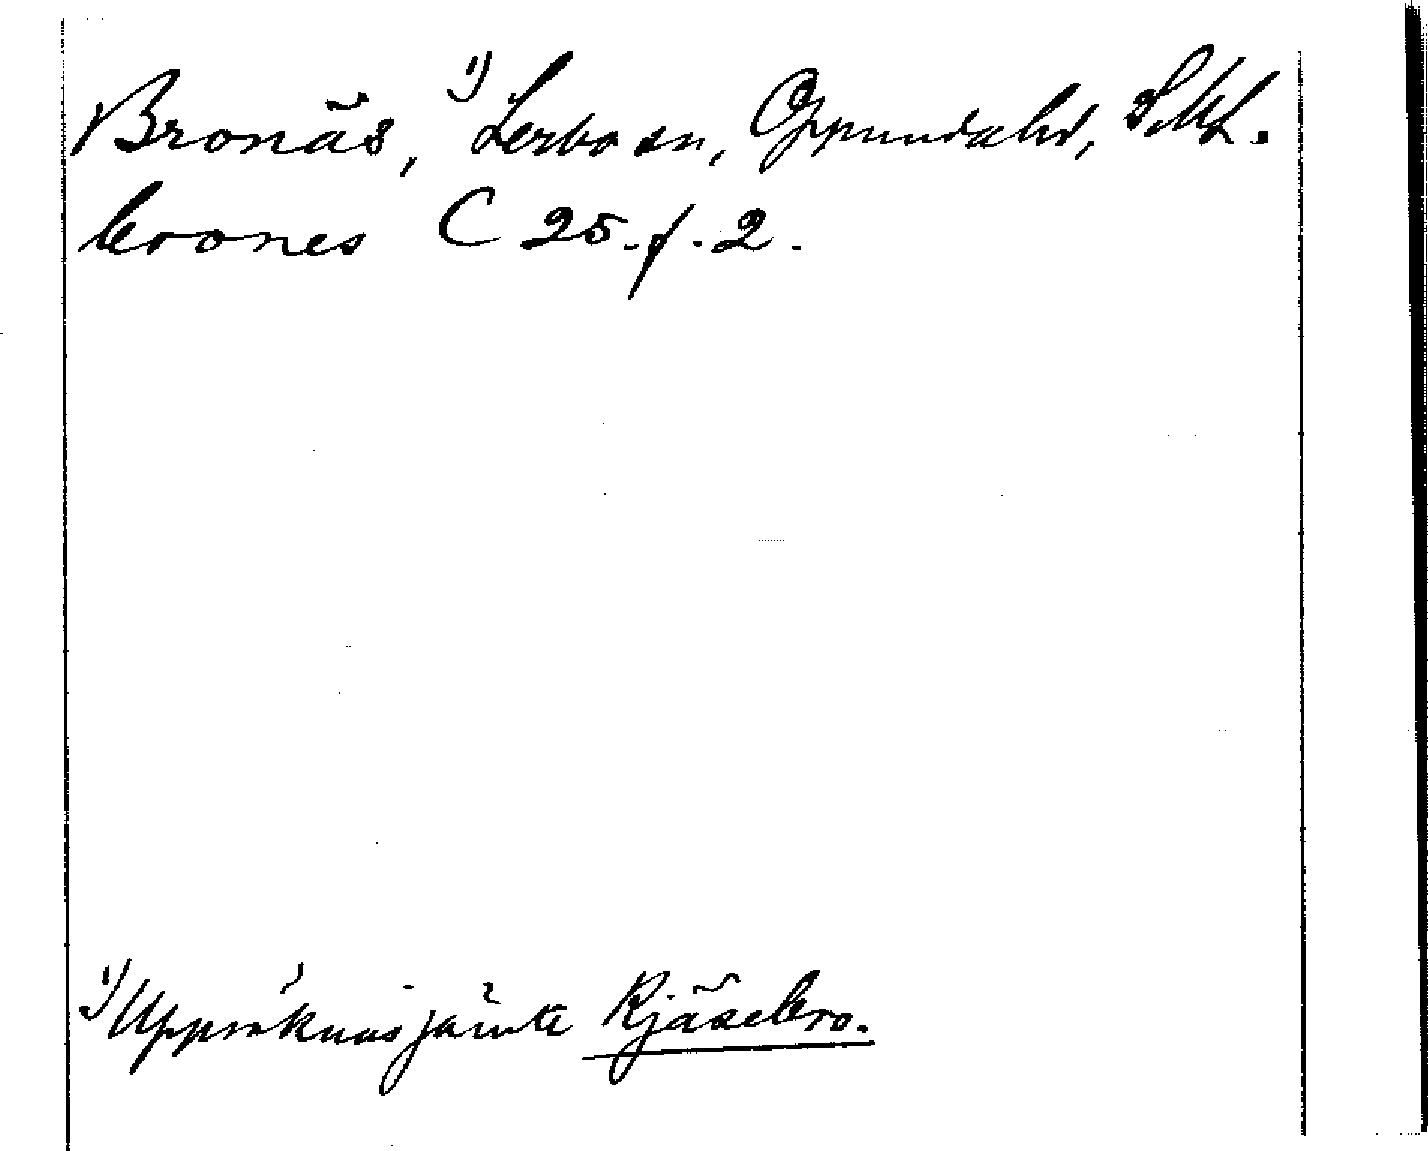 Bronäs, ¹) Lerbo sn, Oppundahd, Sdl.
brones C 25. f. 2.
¹) Uppräknas jämte Kjäsebro.